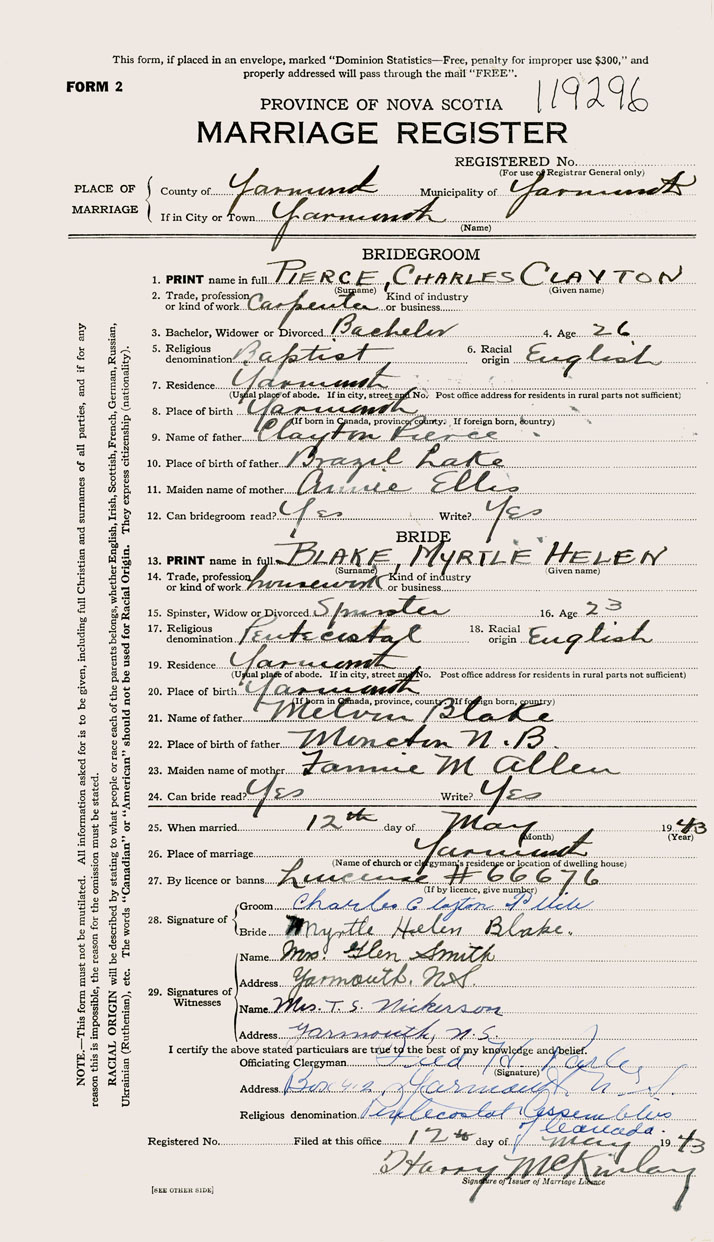 This form, if placed in an envelope, marked "Dominion Statistics—Free, penalty for improper use $300," and
properly addressed will pass through the mail "FREE".
FORM 2
119296
PROVINCE OF NOVA SCOTIA
MARRIAGE REGISTER
REGISTERED No.
(For use of Registrar General only)
PLACE OF MARRIAGE
County of Yarmouth Municipality of Yarmouth
If in City or Town Yarmouth
(Name)
BRIDEGROOM
1. PRINT name in full PIERCE, CHARLES CLAYTON
(Surname) (Given name)
2. Trade, profession or kind of work Carpenter Kind of industry or business
3. Bachelor, Widower or Divorced Bachelor 4. Age 26
5. Religious denomination Baptist 6. Racial origin English
7. Residence Yarmouth
(Usual place of abode. If in city, street and No. Post office address for residents in rural parts not sufficient)
8. Place of birth Yarmouth
(If born in Canada, province, county. If foreign born, country)
9. Name of father Clayton Pierce
10. Place of birth of father Brazil Lake
11. Maiden name of mother Annie Ellis
12. Can bridegroom read? Yes Write? Yes
BRIDE
13. PRINT name in full BLAKE, MYRTLE HELEN
(Surname) (Given name)
14. Trade, profession or kind of work housework Kind of industry or business
15. Spinster, Widow or Divorced Spinster 16. Age 23
17. Religious denomination Pentecostal 18. Racial origin English
19. Residence Yarmouth
(Usual place of abode. If in city, street and No. Post office address for residents in rural parts not sufficient)
20. Place of birth Yarmouth
(If born in Canada, province, county. If foreign born, country)
21. Name of father Melvin Blake
22. Place of birth of father Moncton N.B.
23. Maiden name of mother Fannie M Allen
24. Can bride read? Yes Write? Yes
25. When married 12th day of May 1943
(Month) (Year)
26. Place of marriage Yarmouth
(Name of church or clergyman's residence or location of dwelling house)
27. By licence or banns # 66676
(If by licence, give number)
28. Signature of
Groom Charles Clayton
Bride Myrtle Helen Blake.
29. Signatures of Witnesses
Name Mrs. Glen Smith
Address Yarmouth, N.S.
Name Mrs. T. S. Nickerson
Address Yarmouth, N.S.
I certify the above stated particulars are true to the best of my knowledge and belief.
Officiating Clergyman Fred H.
(Signature)
Address Box 412, Yarmouth N.S.
Religious denomination Pentecostal Assemblies
of Canada.
Registered No. Filed at this office 12th day of May 1943
Harry McKinlay
Signature of Issuer of Marriage Licence
[SEE OTHER SIDE]
NOTE.—This form must not be mutilated. All information asked for is to be given, including full Christian and surnames of all parties, and if for any
reason this is impossible, the reason for the omission must be stated.
RACIAL ORIGIN will be described by stating to what people or race each of the parents belongs, whether English, Irish, Scottish, French, German, Russian,
Ukrainian (Ruthenian), etc. The words "Canadian" or "American" should not be used for Racial Origin. They express citizenship (nationality).